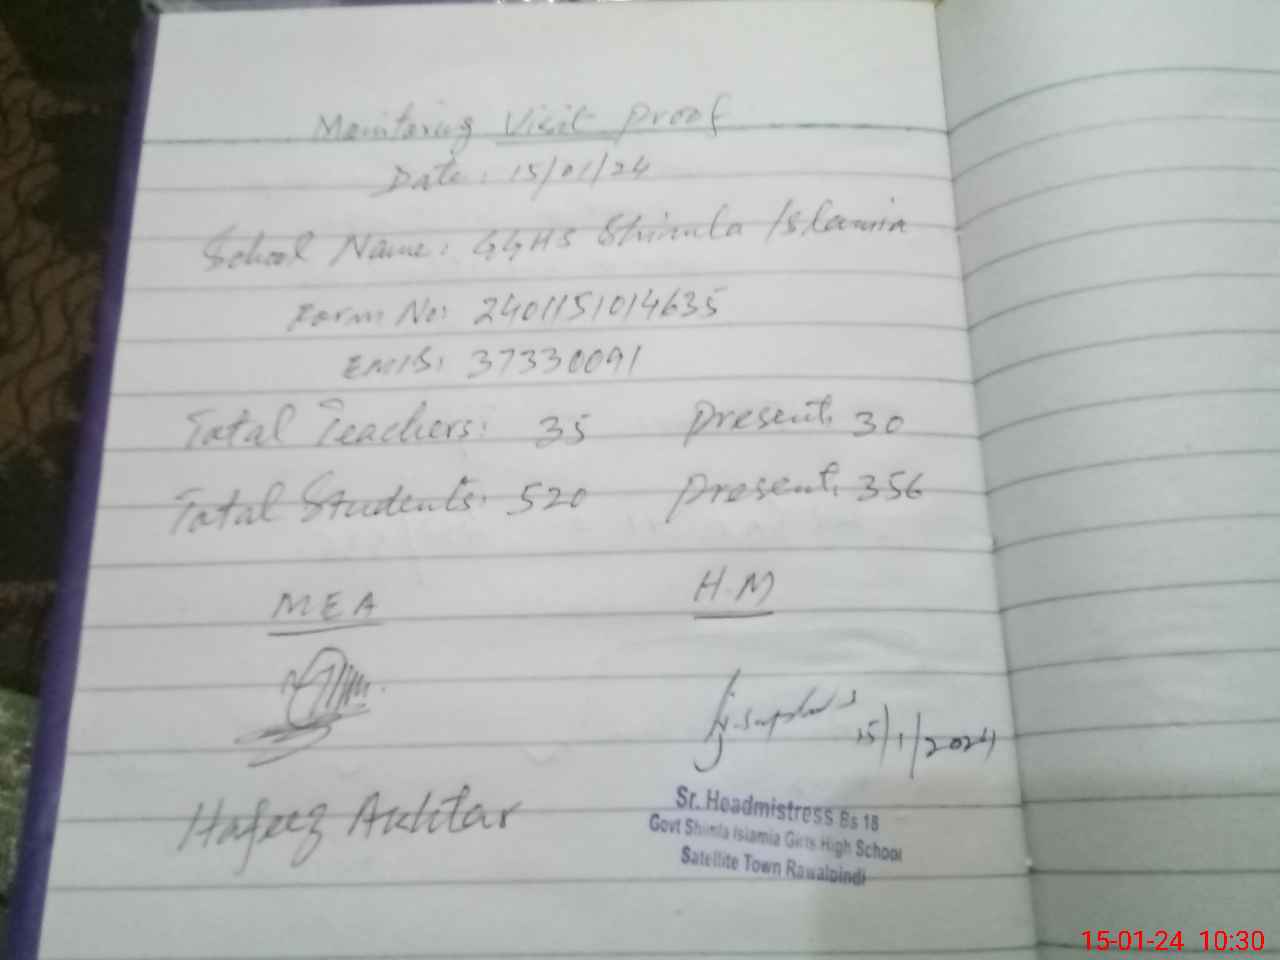 Monitoring Visit Proof
Date: 15/01/24
School Name: GGHS Shimla Islamia
Form No: 2401151014635
EMIS: 37330091
Total Teachers: 35 Present: 30
Total Students: 520 Present: 356
MEA H.M
15/1/2024
Hafeez Akhtar
Sr. Headmistress Bs 18
Govt Shimla Islamia Girls High School
Satellite Town Rawalpindi
15-01-24 10:30